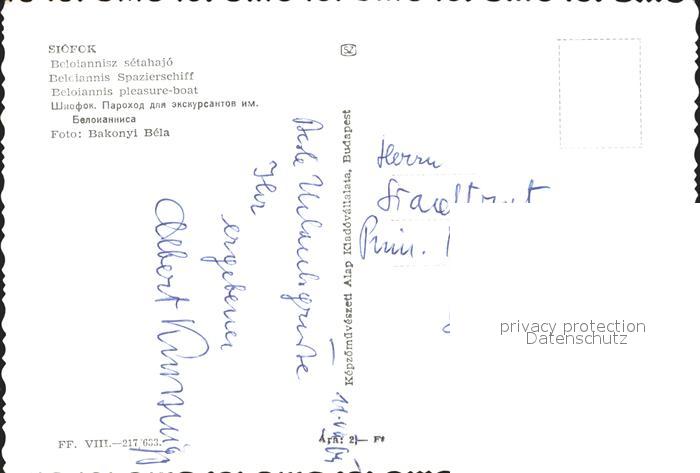 SIÓFOK
Beloiannisz sétahajó
Beloiannis Spazierschiff
Beloiannis pleasure-boat
Шиофок. Пароход для экскурсантов им.
Белоианниса
Foto: Bakonyi Béla
SZ
Képzőművészeti Alap Kiadóvállalata, Budapest
Beste Urlaubsgrüsse
Ihr
ergebener
Albert
Herrn
Prim.
privacy protection
Datenschutz
FF. VIII.—217/633.
Ára: 2,— Ft